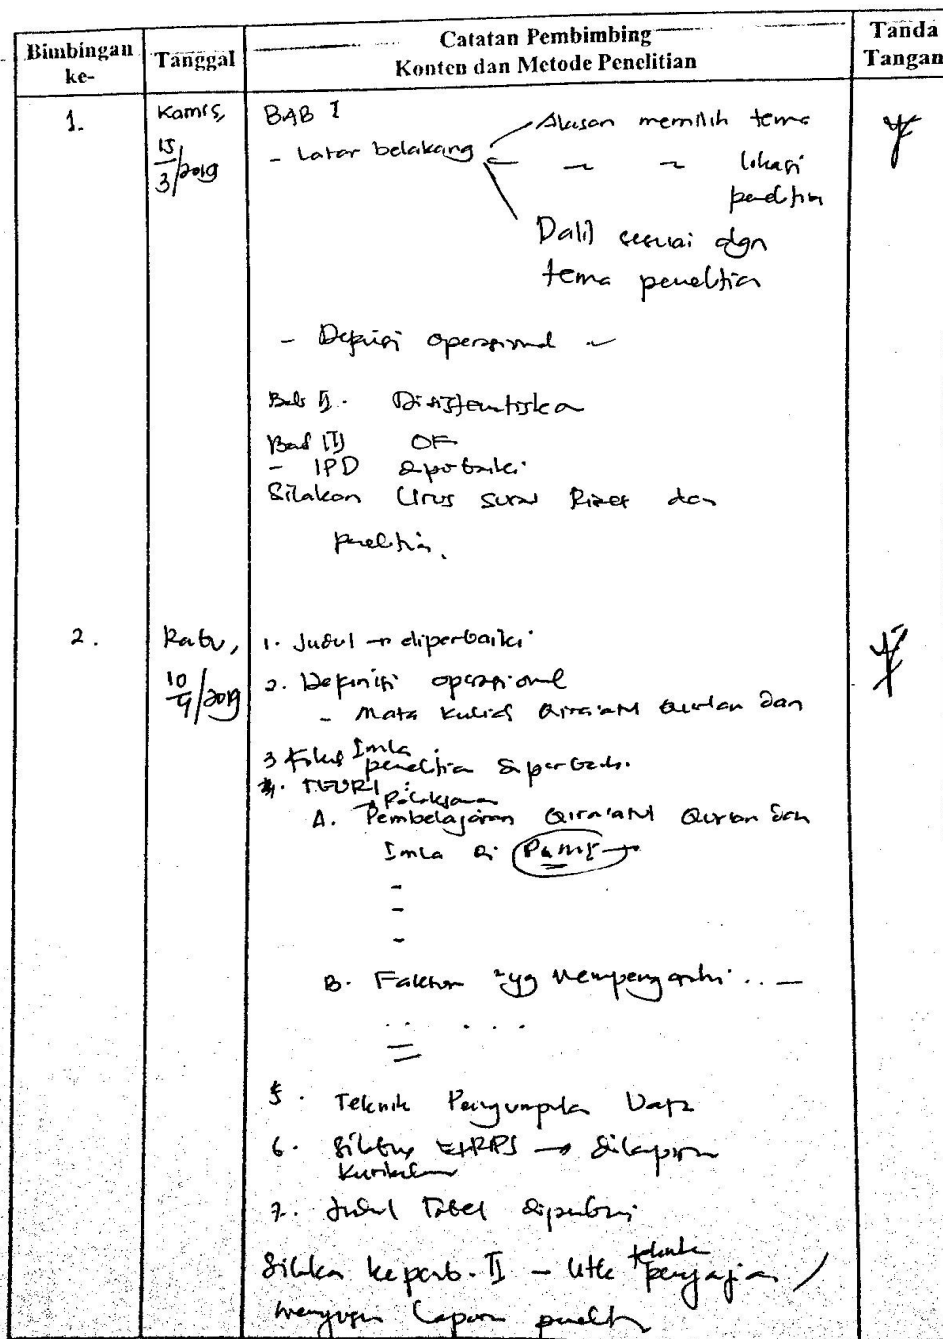 Bimbingan ke-
Tanggal
Catatan Pembimbing
Konten dan Metode Penelitian
Tanda Tangan
1.
Kamis,
15/3/2019
BAB I
- Latar belakang
Alasan memilih tema
~ ~ lokasi
penelitian
Dalil sesuai dgn
tema penelitian
- Definisi operasional
Bab II. Disistematiskan
Bab III OF
- IPD diperbaiki
Silakan Urus surat Riset dan
penelitian.
2.
Rabu,
2019
1. Judul → diperbaiki
2. Definisi operasional
- Mata Kuliah Qira'atul Qur'an dan
Imla
3 Fokus penelitian diperbaiki.
4. TEORI :
A. Pembelajaran Qira'atul Qur'an dan
Imla di
-
-
-
B. Faktor ²yg Mempengaruhi .. —
.. ...
5. Teknik Pengumpulan Data
6. Silabus RPS → dilampirkan
Kurikulum
7. Judul Tabel diperbaiki
Silakan ke pemb. II - Utk teknik penyajian /
menyusun laporan penelitian